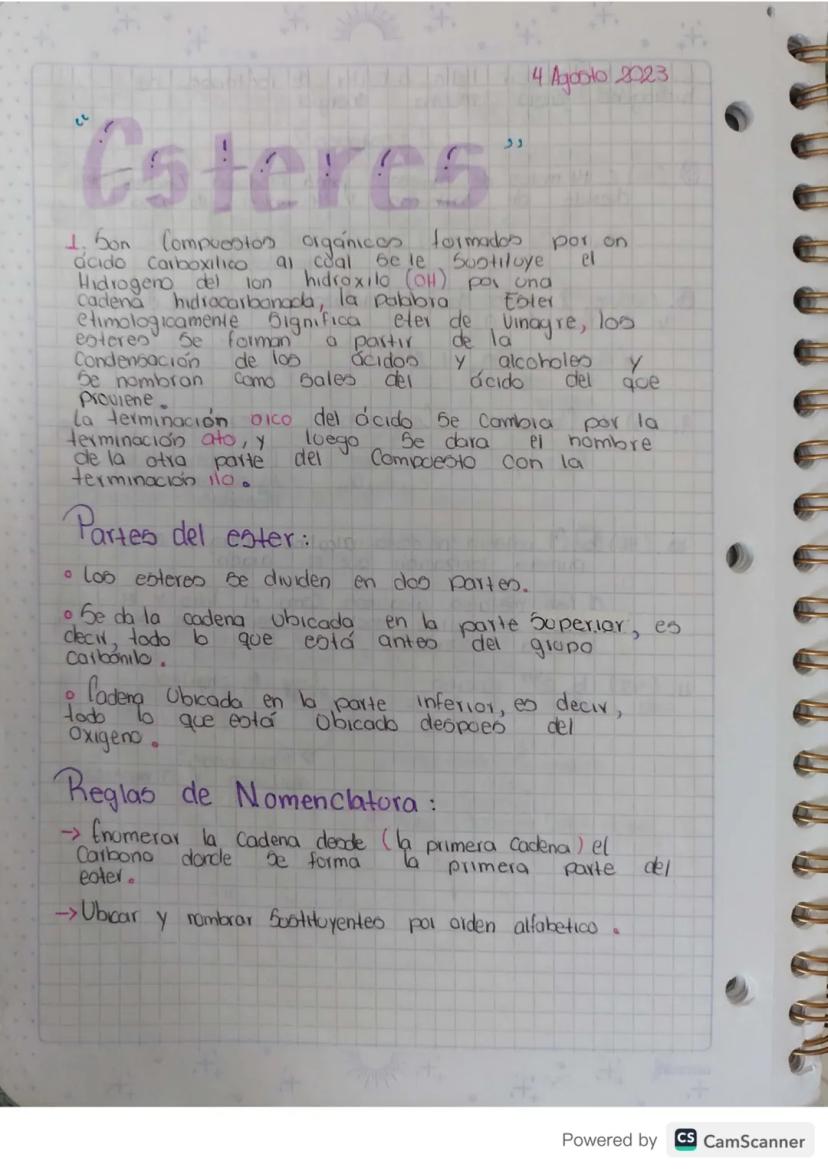 4 Agosto 2023
"Esteres"
1. Son Compuestos orgánicos formados por un
ácido carboxilico al cual se le Sustituye el
Hidrogeno del Ion hidroxilo (OH) por una
cadena hidrocarbonada, la palabra Ester
etimologicamente Significa eter de Vinagre, los
esteres Se forman a partir de la
Condensación de los ácidos y alcoholes y
Se nombran como sales del ácido del que
proviene.
La terminación oico del ácido Se Cambia por la
terminación ato, y luego Se dara el nombre
de la otra parte del Compuesto con la
terminación ilo.
Partes del ester:
• Los esteres se dividen en dos partes.
• Se da la cadena Ubicada en la parte Superior, es
decir, todo lo que está antes del grupo
carbónilo.
• Cadena Ubicada en la parte inferior, es decir,
todo lo que está Ubicado despues del
Oxigeno.
Reglas de Nomenclatura:
→ Enumerar la Cadena desde (la primera Cadena) el
Carbono donde Se forma la primera parte del
ester.
→ Ubicar y nombrar Sustituyentes por orden alfabetico.
Powered by CS CamScanner